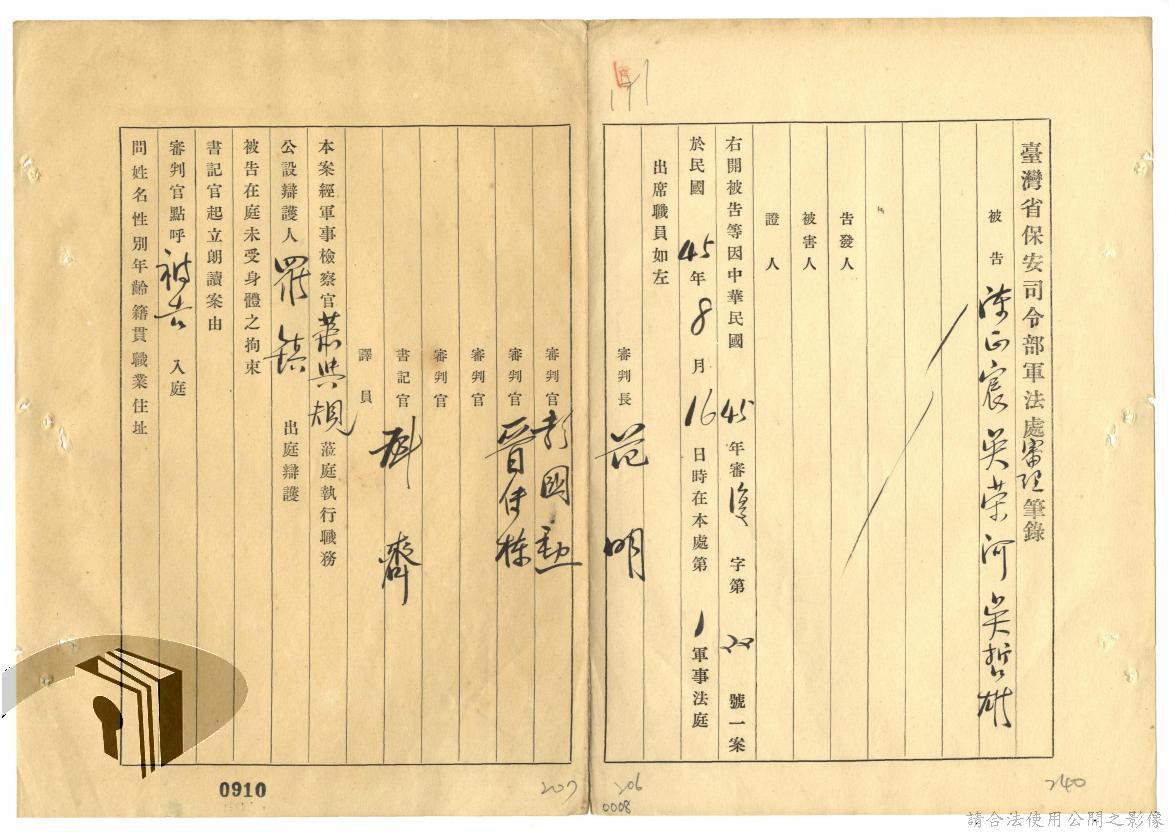 臺灣省保安司令部軍法處審訊筆錄
被告 陳正宸 吳荣河 吳哲雄
告發人
被害人
證人
右開被告等因中華民國45年審復字第 號一案
於民國45年8月16日時在本處第1軍事法庭
出席職員如左
審判長 范明
審判官 彭國勳
審判官
審判官
審判官
書記官 齊
譯員
本案經軍事檢察官蕭與規蒞庭執行職務
公設辯護人 羅鎮 出庭辯護
被告在庭未受身體之拘束
書記官起立朗讀案由
審判官點呼被告入庭
問姓名性別年齡籍貫職業住址
171
0910
207
206
0008
240
請合法使用公開之影像